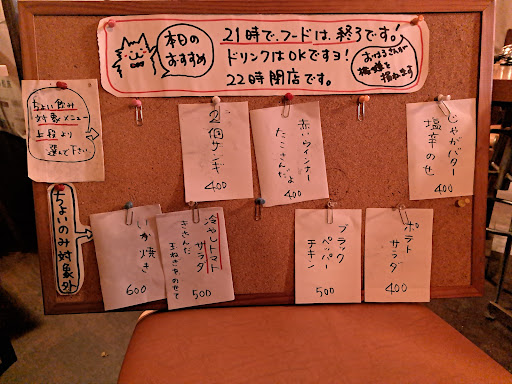 本日の
おすすめ
21時で、フードは、終了です!
ドリンクはOKですヨ!
22時閉店です。
おはるさんが
ちょい飲み
対象メニュー
上段より
選んで下さい
2個ザンギ
400
赤いウインナー
たこさんだよ
400
じゃがバター
塩辛のせ
400
ちょいのみ対象外
いか焼き
600
冷やしトマト
サラダ
きざんだ
玉ねぎをのせて
500
ブラック
ペッパー
チキン
500
ポテト
サラダ
400